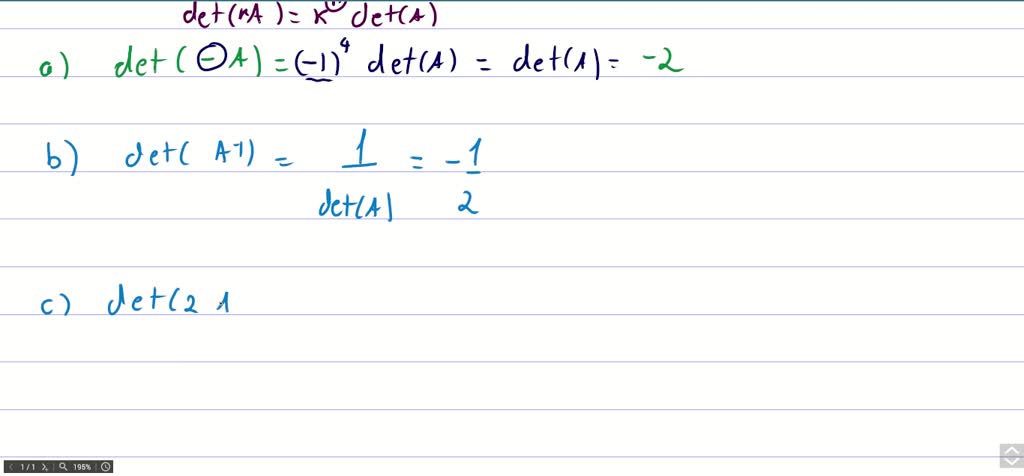 det(kA) = k⁽ⁿ⁾ det(A)
a) det(-A) = (-1)⁴ det(A) = det(A) = -2
b) det(A-1) = 1/det(A) = -1/2
c) det(2 A
1/1 195%